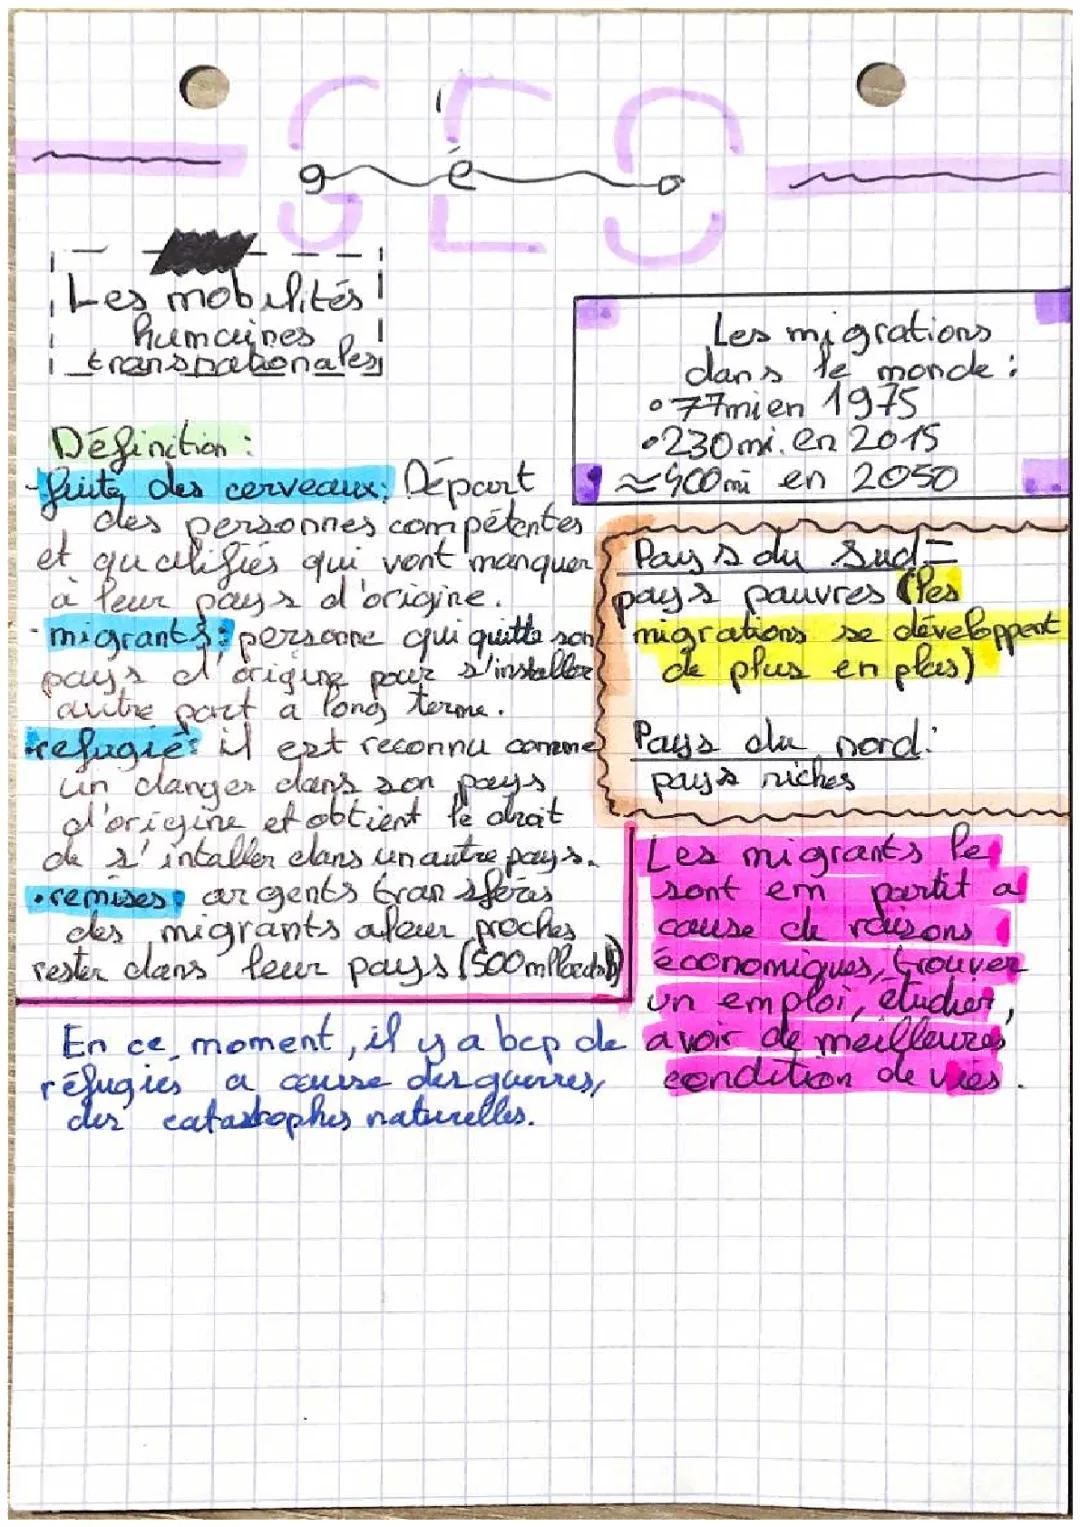 GEO
géo
Les mobilités
humaines
transnationales
Les migrations
dans le monde :
•77mi en 1975
•230mi. en 2015
≈400mi en 2050
Définition :
-fuite des cerveaux: Départ
des personnes compétentes
et qualifiés qui vont manquer
à leur pays d'origine.
·migrants: personne qui quitte son
pays d'origine pour s'installer
autre part a long terme.
•refugié: il est reconnu comme
un danger dans son pays
d'origine et obtient le droit
de s'intaller dans un autre pays.
•remises: argents transférés
des migrants a leur proches
rester dans leur pays (500
Pays du Sud=
pays pauvres (les
migrations se développent
de plus en plus)
Pays du nord:
pays riches
Les migrants le
sont em partit a
cause de raisons
économiques, trouver
un emploi, étudier,
avoir de meilleures
condition de vies.
En ce moment, il y a bcp de
réfugiés a cause des guerres,
des catastrophes naturelles.